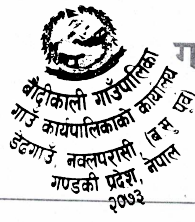 बौदीकाली गाउँपालिका
गाउँ कार्यपालिकाको कार्यालय
डेढगाउँ, नवलपरासी, (ब सु पूर्व)
गण्डकी प्रदेश, नेपाल
२०७३
ग